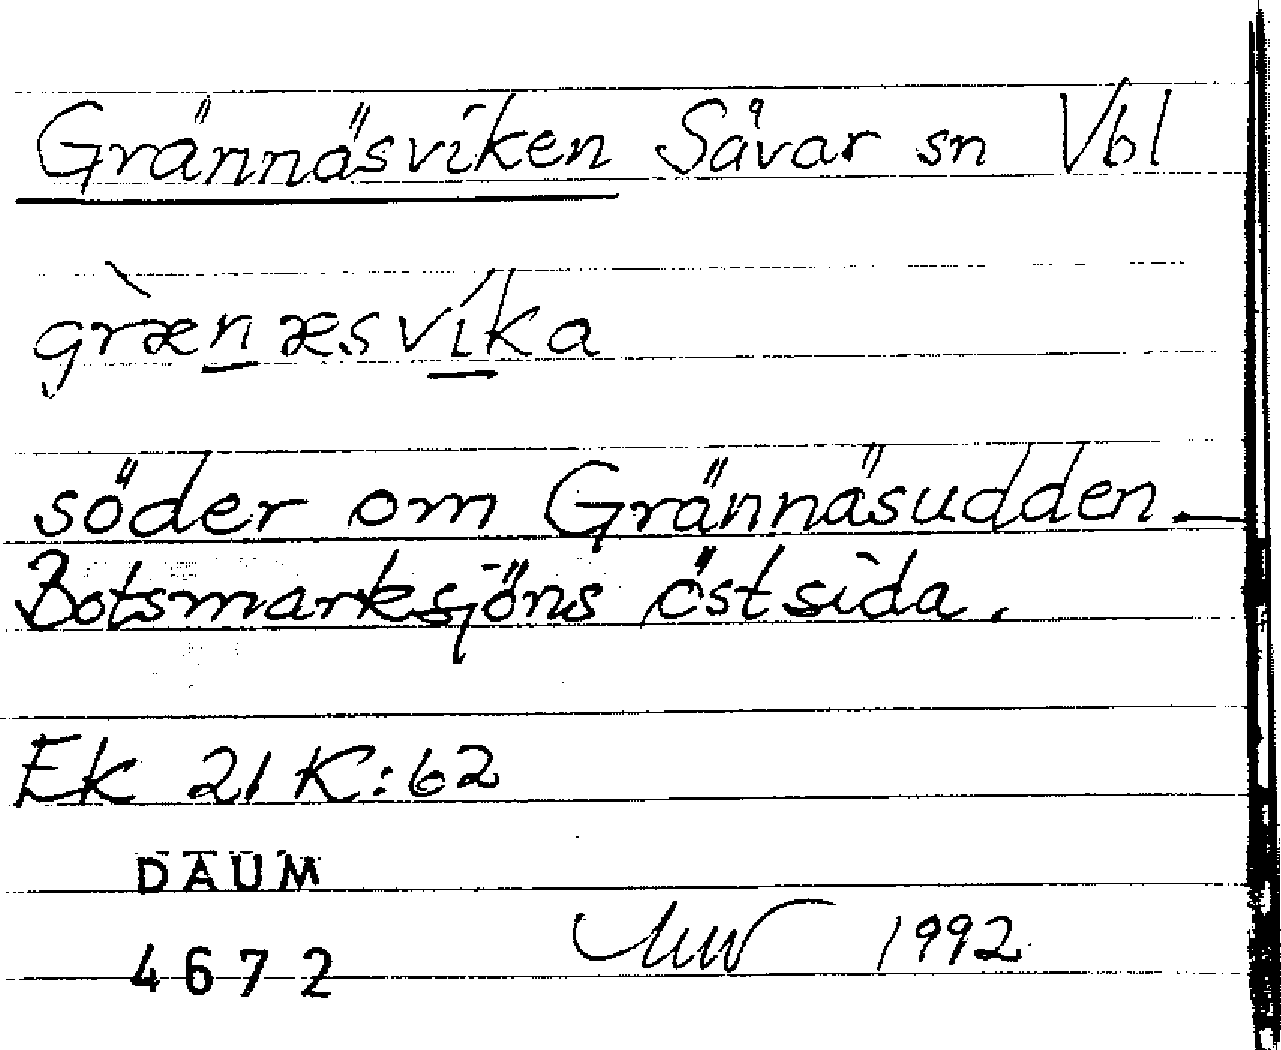 Grännäsviken Sävar sn Vbl
græ̀næsvíka
söder om Grännäsudden –
Botsmarksjöns östsida.
Ek 21 K:62
DAUM
4672
1992